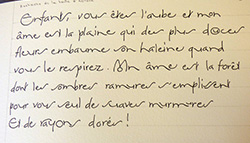 Enfants vous êtes l'aube et mon
âme est la plaine qui des plus douces
fleurs embaume son haleine quand
vous le respirez. Mon âme est la forêt
dont les sombres ramures s'emplissent
pour vous seul de suaves murmures
Et de rayons dorés !